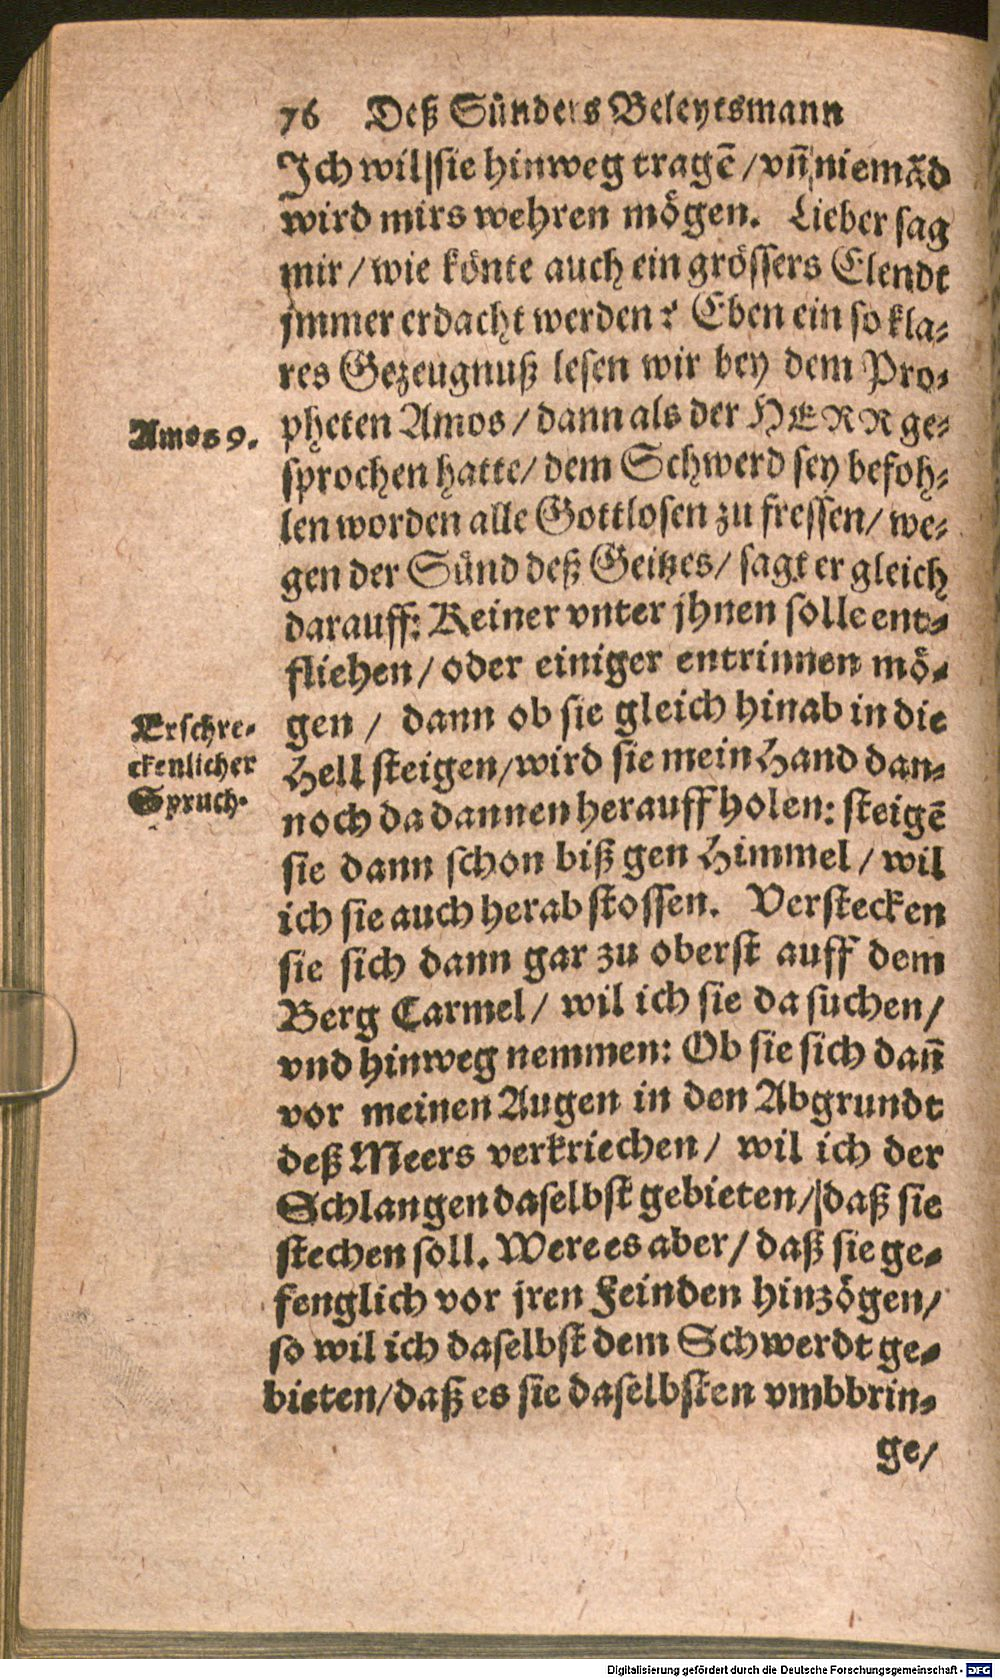 76 Deß Sünders Beleytsmann
Ich wil sie hinweg tragē / vn̄ niemād
wird mirs wehren mögen. Lieber sag
mir / wie könte auch ein grössers Elendt
jmmer erdacht werden? Eben ein so kla-
res Gezeugnuß lesen wir bey dem Pro-
Amos 9.
pheten Amos / dann als der HERR ge-
sprochen hatte / dem Schwerd sey befoh-
len worden alle Gottlosen zu fressen / we-
gen der Sünd deß Geitzes / sagt er gleich
darauff: Keiner vnter jhnen solle ent-
fliehen / oder einiger entrinnen mö-
Erschre-
ckenlicher
Spruch.
gen / dann ob sie gleich hinab in die
Hell steigen / wird sie mein Hand dan-
noch da dannen herauff holen: steigē
sie dann schon biß gen Himmel / wil
ich sie auch herab stossen. Verstecken
sie sich dann gar zu oberst auff dem
Berg Carmel / wil ich sie da suchen /
vnd hinweg nemmen: Ob sie sich dan̄
vor meinen Augen in den Abgrundt
deß Meers verkriechen / wil ich der
Schlangen daselbst gebieten / daß sie
stechen soll. Were es aber / daß sie ge-
fenglich vor jren Feinden hinzögen /
so wil ich daselbst dem Schwerdt ge-
bieten / daß es sie daselbsten vmbbrin-
ge /
Digitalisierung gefördert durch die Deutsche Forschungsgemeinschaft - DFG